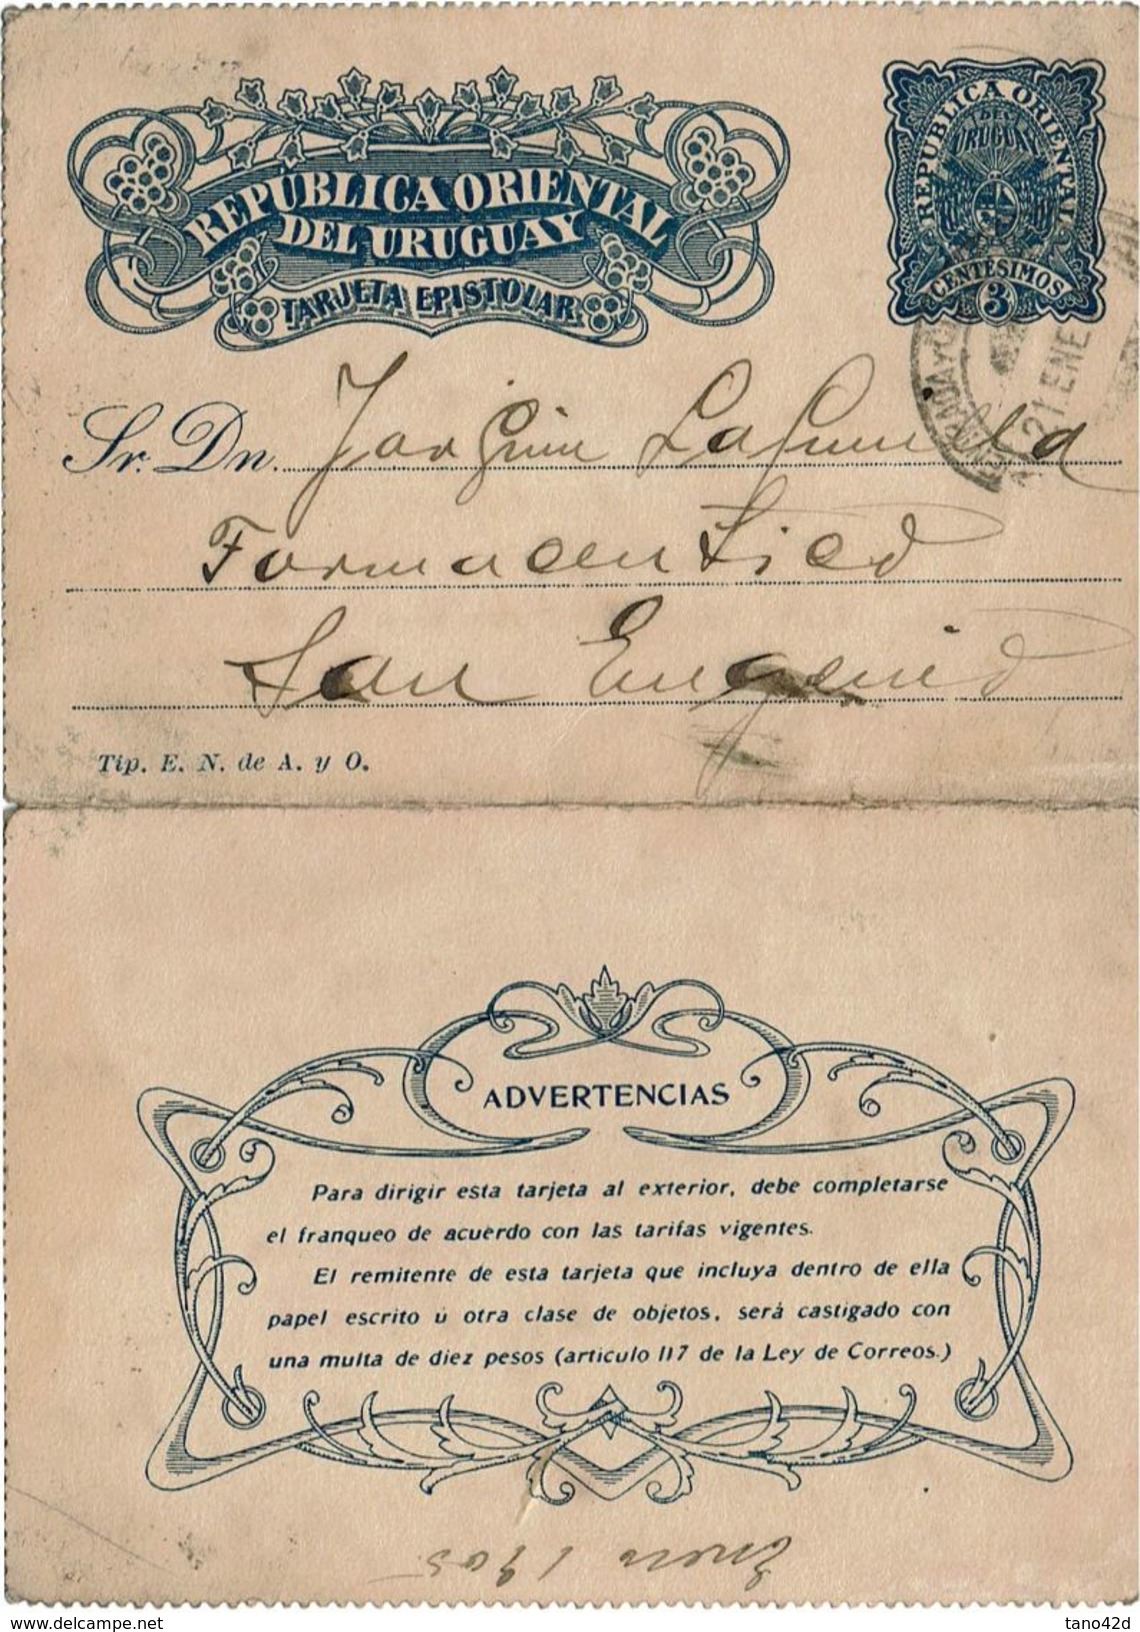 REPÚBLICA ORIENTAL
DEL URUGUAY
TARJETA EPISTOLAR
REPUBLICA ORIENTAL
DEL
URUGUAY
CENTESIMOS
3
21 ENE
Sr. Dn. Joaquin
Farmaceutico
San Eugenio
Tip. E. N. de A. y O.
ADVERTENCIAS
Para dirigir esta tarjeta al exterior, debe completarse
el franqueo de acuerdo con las tarifas vigentes.
El remitente de esta tarjeta que incluya dentro de ella
papel escrito ú otra clase de objetos, será castigado con
una multa de diez pesos (articulo 117 de la Ley de Correos.)
Enero 1905
www.delcampe.net
tano42d